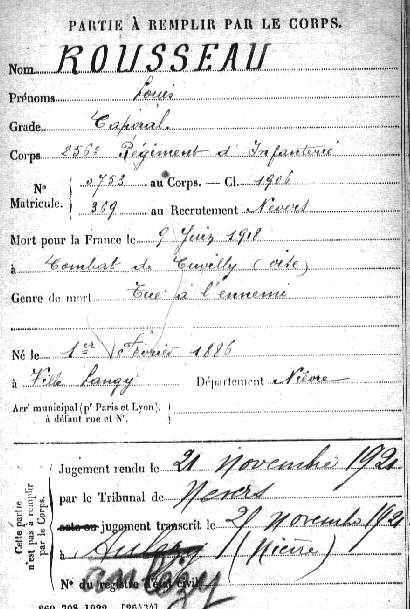 PARTIE À REMPLIR PAR LE CORPS.
Nom ROUSSEAU
Prénoms Louis
Grade Caporal.
Corps 256e Régiment d'Infanterie
N° Matricule. 3753 au Corps. — Cl. 1906
369 au Recrutement Nevers
Mort pour la France le 9 Juin 1918
à Combat de Cuvilly (oise)
Genre de mort Tué à l'ennemi
Né le 1er Février 1886
à Ville Langy Département Nièvre
Arrt municipal (pr Paris et Lyon).
à défaut rue et N°.
Cette partie n'est pas à remplir par le Corps.
Jugement rendu le 21 novembre 1921
par le Tribunal de Nevers
acte ou jugement transcrit le novembre 1921
à Anlezy (Nièvre)
N° du registre d'état civil
anlezy